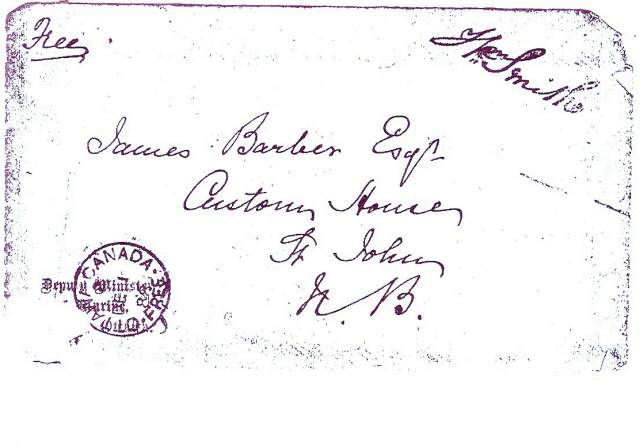 Free
Wm Smith
James Barber Esqr
Custom House
St John
N. B.
CANADA
FREE
Deputy Minister
Marine,